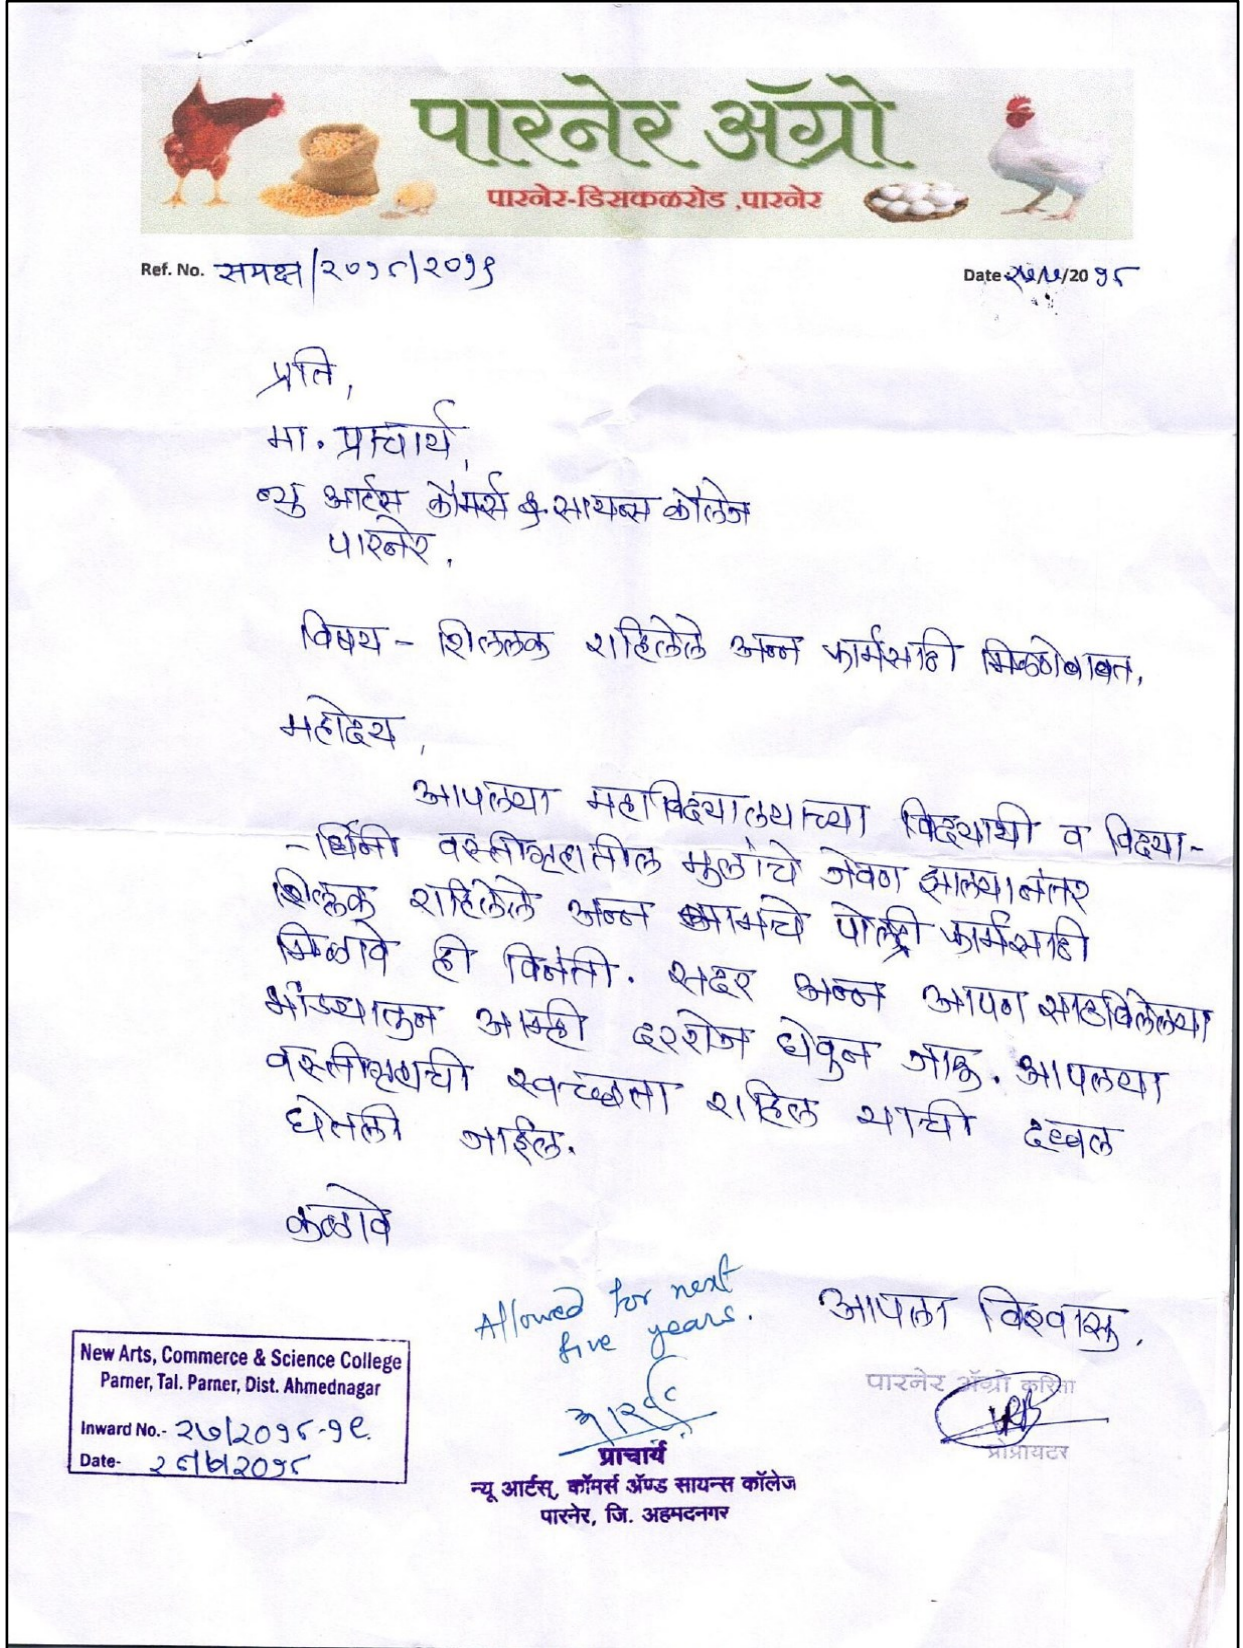 पारनेर ॲग्रो
पारनेर-डिसकळरोड ,पारनेर
Ref. No. समक्ष/२०१८/२०१९
Date /20 १८
प्रति,
मा. प्राचार्य,
न्यु आर्टस कॉमर्स & सायन्स कॉलेज
पारनेर.
विषय - शिल्लक राहिलेले अन्न फार्मसाठी मिळणेबाबत.
महोदय,
आपल्या महाविद्यालयाच्या विद्यार्थी व विद्या-
-र्थिनी वस्तीगृहातील मुलांचे जेवण झाल्यानंतर
शिल्लक राहिलेले अन्न आमचे पोल्ट्री फार्मसाठी
मिळावे ही विनंती. सदर अन्न आपण साठविलेल्या
भांड्यातुन आम्ही दररोज घेवुन जाऊ. आपल्या
वस्तीगृहाची स्वच्छता राहिल याची दखल
घेतली जाईल.
कळावे
Allowed for next
five years.
आपला विश्वासु.
पारनेर ॲग्रो करिता
प्रोप्रायटर
New Arts, Commerce & Science College
Parner, Tal. Parner, Dist. Ahmednagar
Inward No.- २७/२०१८-१९.
Date- २०१८
प्राचार्य
न्यू आर्टस्, कॉमर्स ॲण्ड सायन्स कॉलेज
पारनेर, जि. अहमदनगर